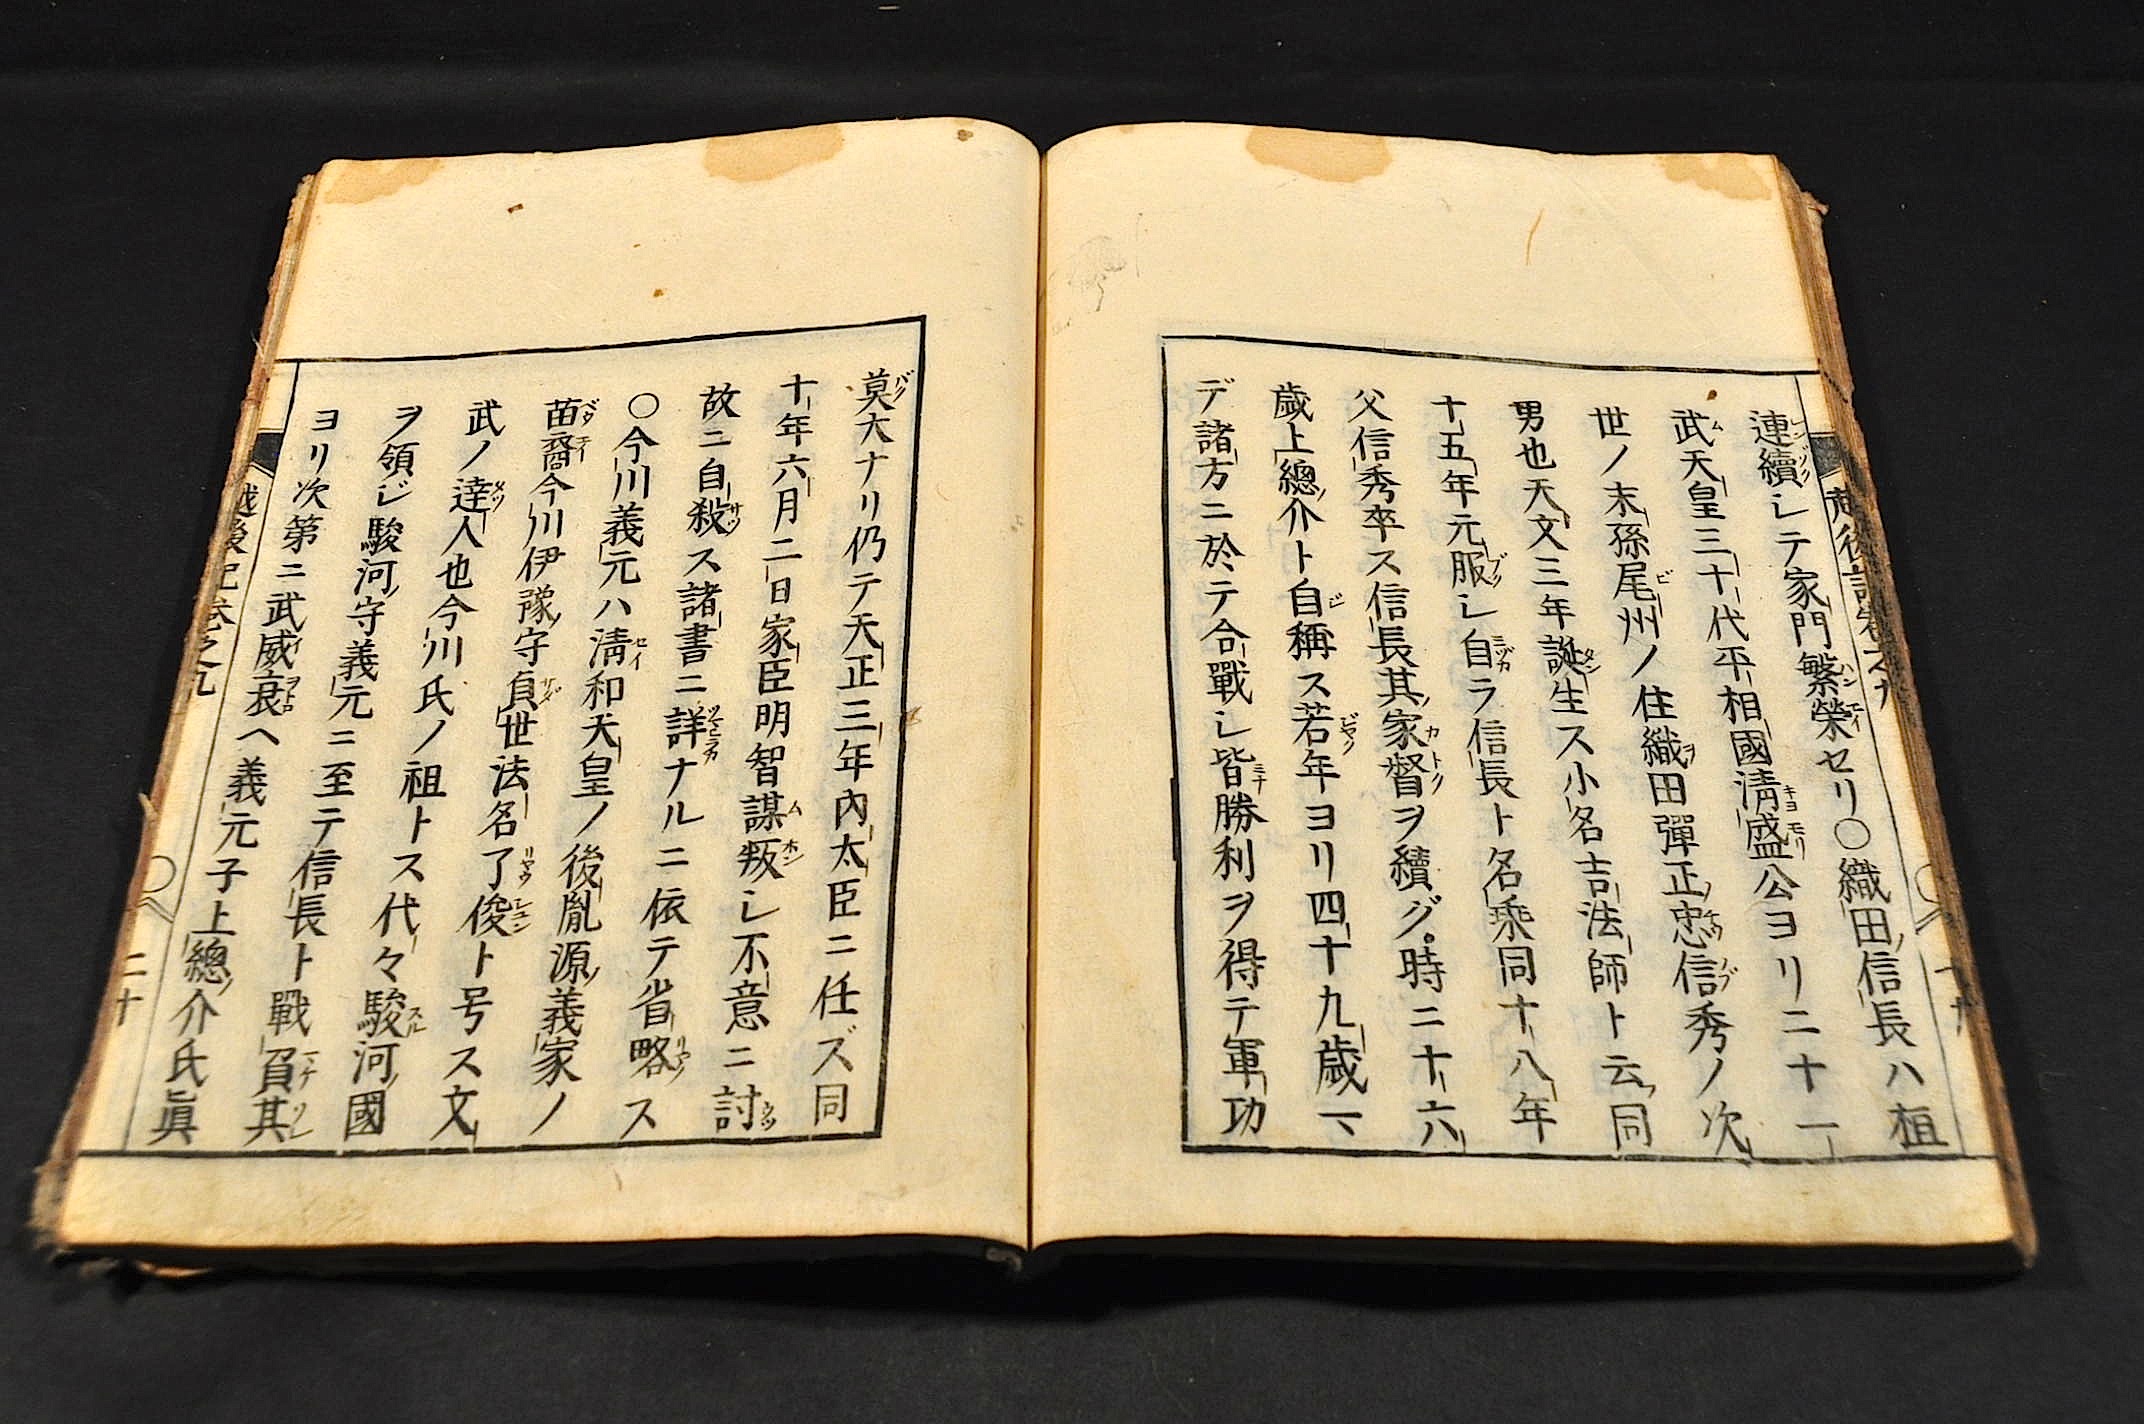 連續シテ家門繁榮セリ〇織田信長ハ桓
武天皇三十代平相國淸盛公ヨリ二十一
世ノ末孫尾州ノ住織田彈正忠信秀ノ次
男也天文三年誕生ス小名吉法師ト云同
十五年元服シ自ラ信長ト名乘同十八年
父信秀卒ス信長其家督ヲ續グ時ニ十六
歲上總介ト自稱ス若年ヨリ四十九歲マ
デ諸方ニ於テ合戰シ皆勝利ヲ得テ軍功
莫大ナリ仍テ天正三年內太臣ニ任ズ同
十年六月二日家臣明智謀叛シ不意ニ討
故ニ自殺ス諸書ニ詳ナルニ依テ省略ス
〇今川義元ハ淸和天皇ノ後胤源義家ノ
苗裔今川伊豫守貞世法名了俊ト号ス文
武ノ達人也今川氏ノ祖トス代々駿河國
ヲ領シ駿河守義元ニ至テ信長ト戰負其
ヨリ次第ニ武威衰ヘ義元子上總介氏眞
越後記卷之九
二十